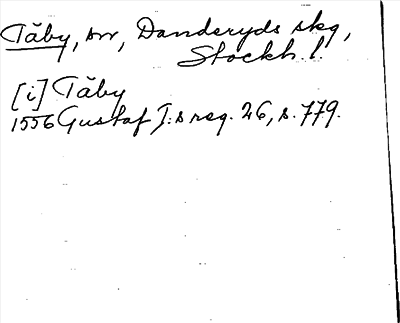 Täby, sn, Danderyds skg,
Stockh. l.
[i] Täby
1556 Gustaf I:s reg. 26, s. 779.